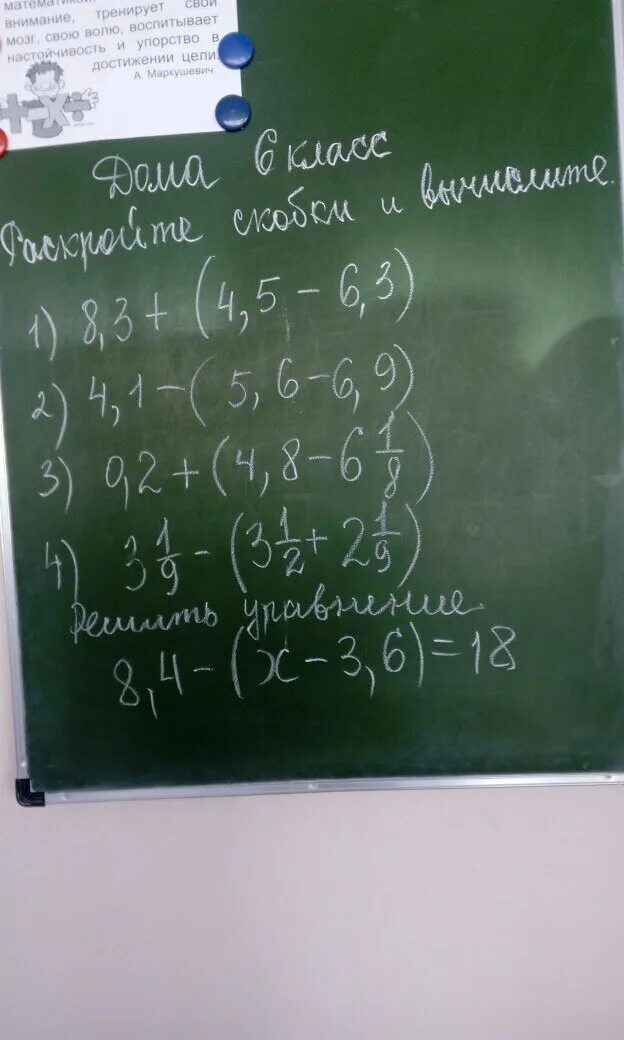 математикой,
внимание, тренирует свой
мозг, свою волю, воспитывает
настойчивость и упорство в
достижении цели.
А. Маркушевич
+ - × ÷
Дома 6 класс
Раскройте скобки и вычислите.
1) 8,3 + (4,5 - 6,3)
2) 4,1 - (5,6 - 6,9)
3) 0,2 + (4,8 - 6 1/8)
4) 3 1/9 - (3 1/2 + 2 1/9)
Решить уравнение
8,4 - (x - 3,6) = 18